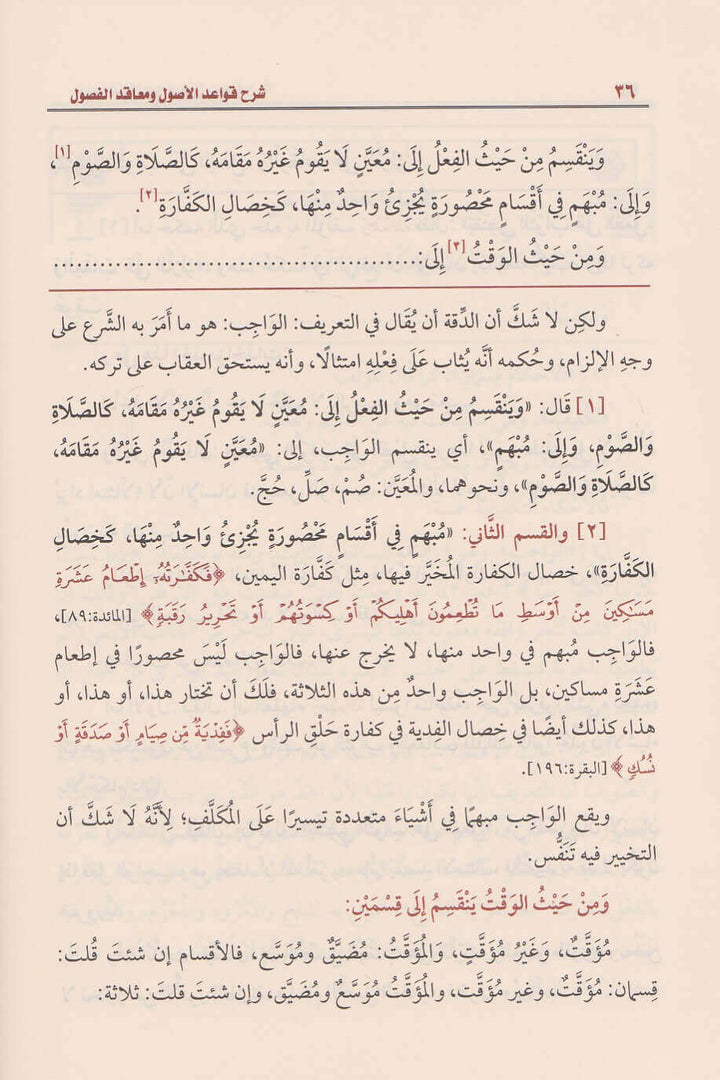 ٣٦ شرح قواعد الأصول ومعاقد الفصول
وَيَنْقَسِمُ مِنْ حَيْثُ الفِعْلُ إِلَى: مُعَيَّنٍ لَا يَقُومُ غَيْرُهُ مَقَامَهُ، كَالصَّلَاةِ وَالصَّوْمِ[١]،
وَإِلَى: مُبْهَمٍ فِي أَقْسَامٍ مَحْصُورَةٍ يُجْزِئُ وَاحِدٌ مِنْهَا، كَخِصَالِ الكَفَّارَةِ[٢].
وَمِنْ حَيْثُ الوَقْتُ[٣] إِلَى:................................................
ولكِن لا شَكَّ أن الدِّقة أن يُقَال في التعريف: الوَاجِب: هو ما أَمَرَ به الشَّرع على
وجهِ الإلزام، وحُكمه أنَّه يُثاب عَلَى فِعْلِهِ امتثالًا، وأنه يستحق العقاب على تركه.
[١] قَال: «وَيَنْقَسِمُ مِنْ حَيْثُ الفِعْلُ إِلَى: مُعَيَّنٍ لَا يَقُومُ غَيْرُهُ مَقَامَهُ، كَالصَّلَاةِ
وَالصَّوْمِ، وَإِلَى: مُبْهَمٍ»، أي ينقسم الوَاجِب، إلى: «مُعَيَّنٍ لَا يَقُومُ غَيْرُهُ مَقَامَهُ،
كَالصَّلَاةِ وَالصَّوْمِ»، ونحوهما، والمُعَيَّن: صُمْ، صَلِّ، حُجَّ.
[٢] والقسم الثَّاني: «مُبْهَمٍ فِي أَقْسَامٍ مَحْصُورَةٍ يُجْزِئُ وَاحِدٌ مِنْهَا، كَخِصَالِ
الكَفَّارَةِ»، خصال الكفارة المُخَيَّر فيها، مِثل كَفَّارَة اليمين، ﴿فَكَفَّـٰرَتُهُۥٓ إِطْعَامُ عَشَرَةِ
مَسَـٰكِينَ مِنْ أَوْسَطِ مَا تُطْعِمُونَ أَهْلِيكُمْ أَوْ كِسْوَتُهُمْ أَوْ تَحْرِيرُ رَقَبَةٍ﴾ [المائدة:٨٩]،
فالوَاجِب مُبهم في واحد منها، لا يخرج عنها، فالوَاجِب لَيْسَ محصورًا في إطعام
عَشَرَةِ مساكين، بل الوَاجِب واحدٌ مِن هذه الثلاثة، فلَكَ أن تختار هذا، أو هذا، أو
هذا، كذلك أيضًا في خِصال الفِدية في كفارة حَلْقِ الرأس ﴿فَفِدْيَةٌ مِّن صِيَامٍ أَوْ صَدَقَةٍ أَوْ
نُسُكٍ﴾ [البقرة:١٩٦].
ويقع الوَاجِب مبهمًا فِي أَشْيَاءَ متعددة تيسيرًا عَلَى المُكَلَّفِ؛ لِأَنَّهُ لَا شَكَّ أن
التخيير فيه تَنَفُّس.
وَمِنْ حَيْثُ الوَقْتُ يَنْقَسِمُ إِلَى قِسْمَيْنِ:
مُؤَقَّتٌ، وَغَيْرُ مُؤَقَّتٍ، وَالمُؤَقَّتُ: مُضَيَّقٌ ومُوَسَّع، فالأقسام إن شئتَ قُلتَ:
قِسمان: مُؤَقَّتٌ، وغير مؤَقَّت، والمُؤَقَّتُ مُوَسَّعٌ ومُضَيَّق، وإن شئتَ قلتَ: ثلاثة: